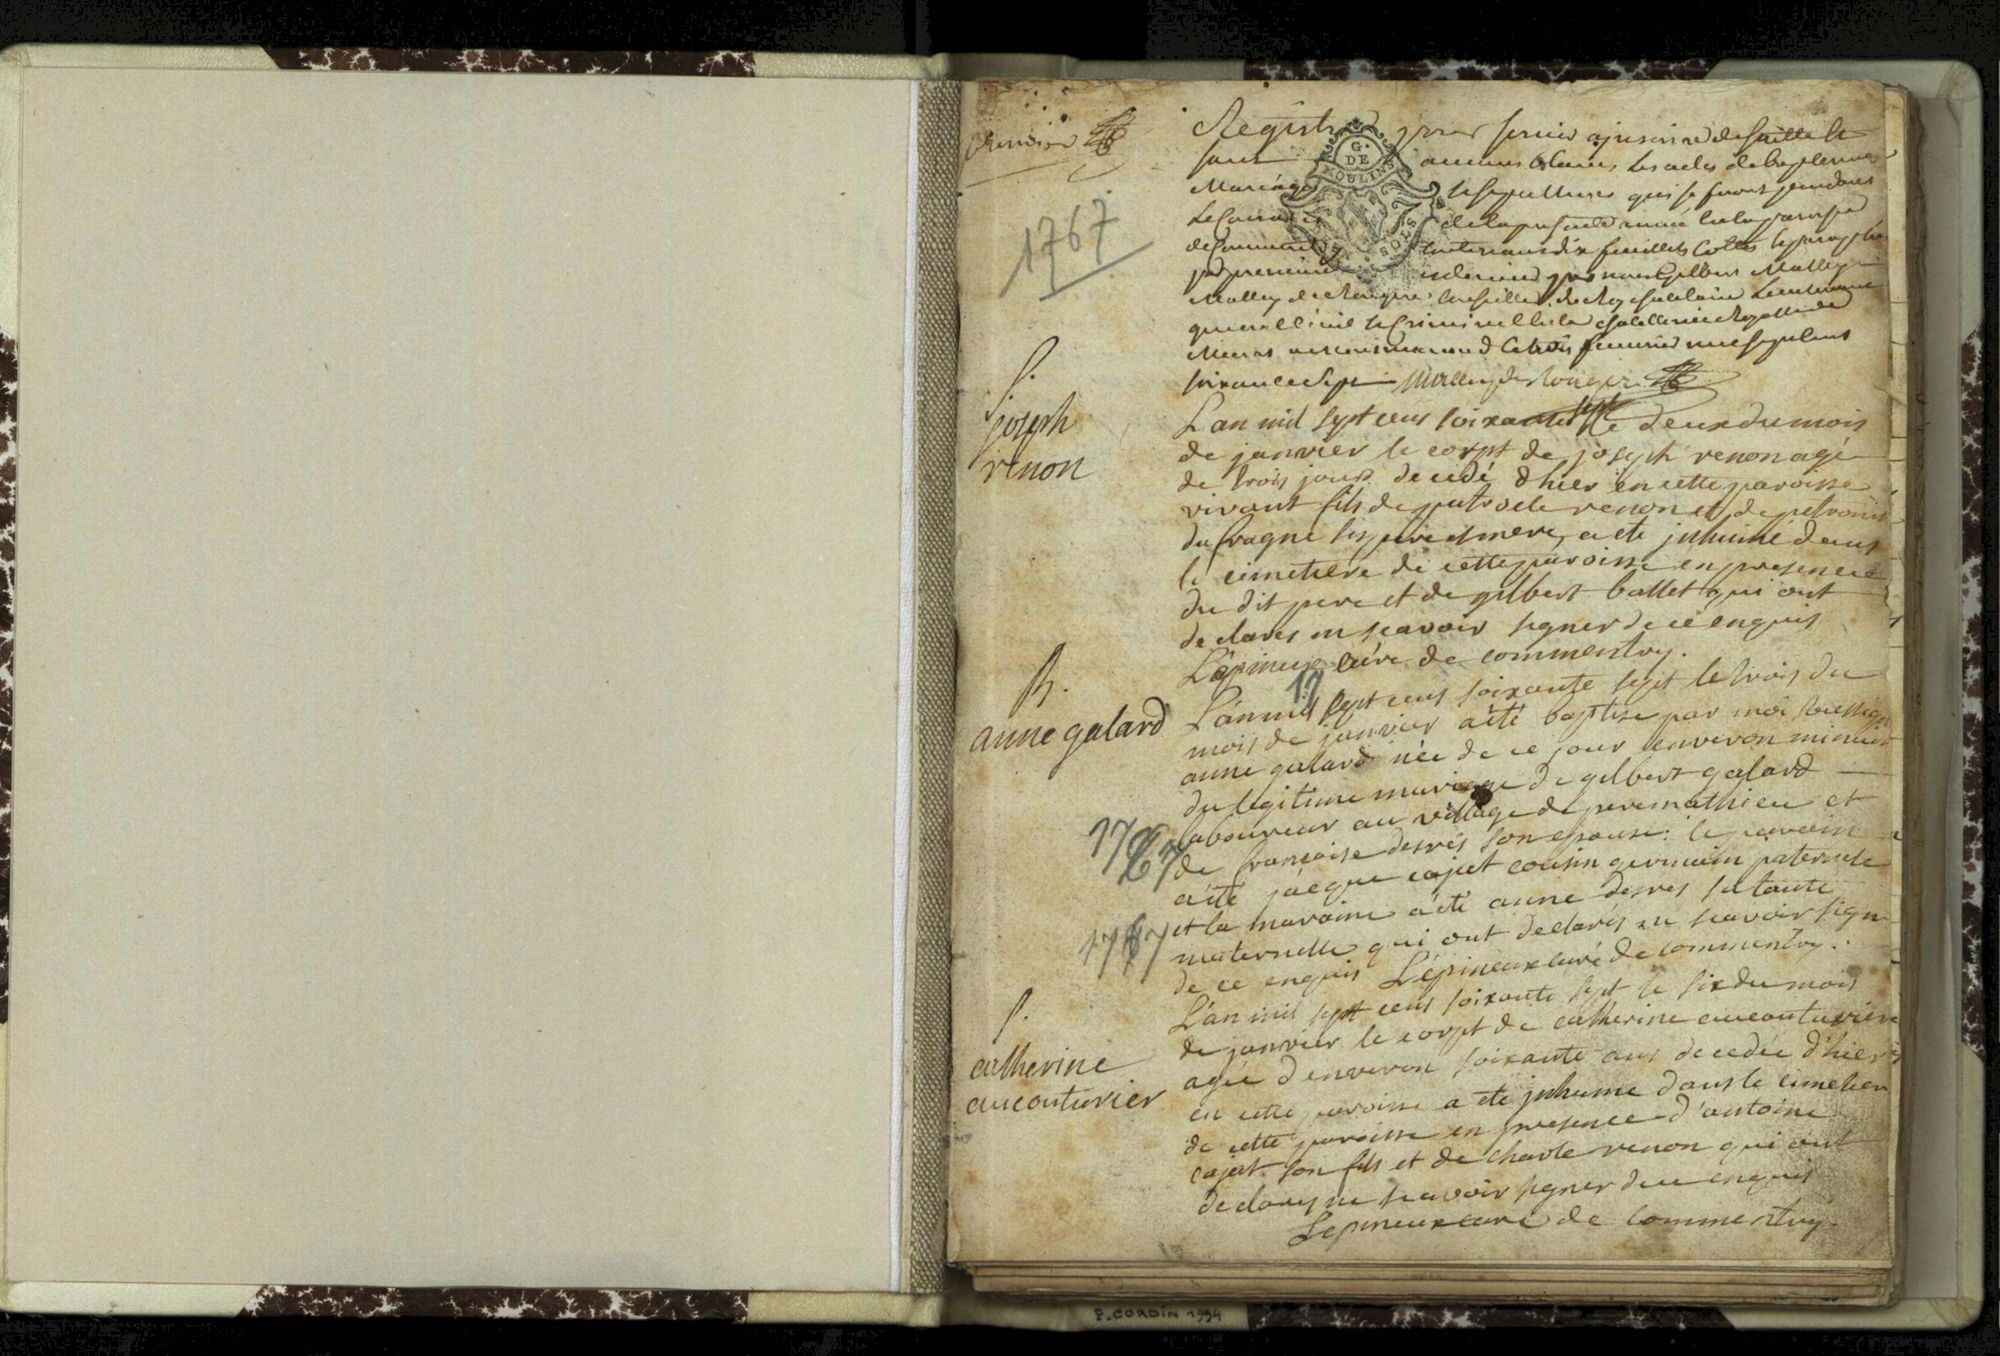 premier
1767
Registre pour servir a inscrire de suitte et
sans aucuns blancs les actes de baptemes
Mariages et sepultures qui se feront pendant
Le Courant de la presente année en la paroisse
de Commentry Contenant dix feuillets Cottés et paraphés
par premier et dernier par nous Gilbert Mallet
conseiller du Roy chatelain Lieutenant
general Civil et Criminel en la chatellenie Royalle de
soixante Sept
G. DE MOULINS
SOLS
S.
joseph
renon
L'an mil sept cens soixante sept le deux du mois
de janvier le corpt de joseph renon agé
de trois jours decedé d'hier en cette paroisse
vivant fils de patrocle renon et de petronille
du fragne ses pere et mere, a été inhumé dans
le cimetiere de cette paroisse en presence
du dit pere et de gilbert ballet qui ont
declarés ne scavoir signer de ce enquis
Lépineux curé de commentry.
B.
anne galard
17
L'an mil sept cens soixante sept le trois du
mois de janvier a été baptisé par moi soussigné
anne galard née de ce jour environ minuit
du legitime mariage de gilbert galard
laboureur au village de peremathieu et
de françoise desres son epouse: le parain
a été jacque cajat cousin germain paternele
et la maraine a été anne desres sa tante
maternelle qui ont declarés ne scavoir signer
de ce enquis Lépineux curé de commentry.
1767
1767
S.
catherine
aucouturier
L'an mil sept cens soixante sept le six du mois
de janvier le corpt de catherine aucouturier
agée d'environ soixante ans decedée d'hier
en cette paroisse a été inhumé dans le cimetiere
de cette paroisse en presence d'antoine
cajat son fils et de charle renon qui ont
declarés ne scavoir signer de ce enquis
Lepineux curé de commentry.
F. CORDIN 1994